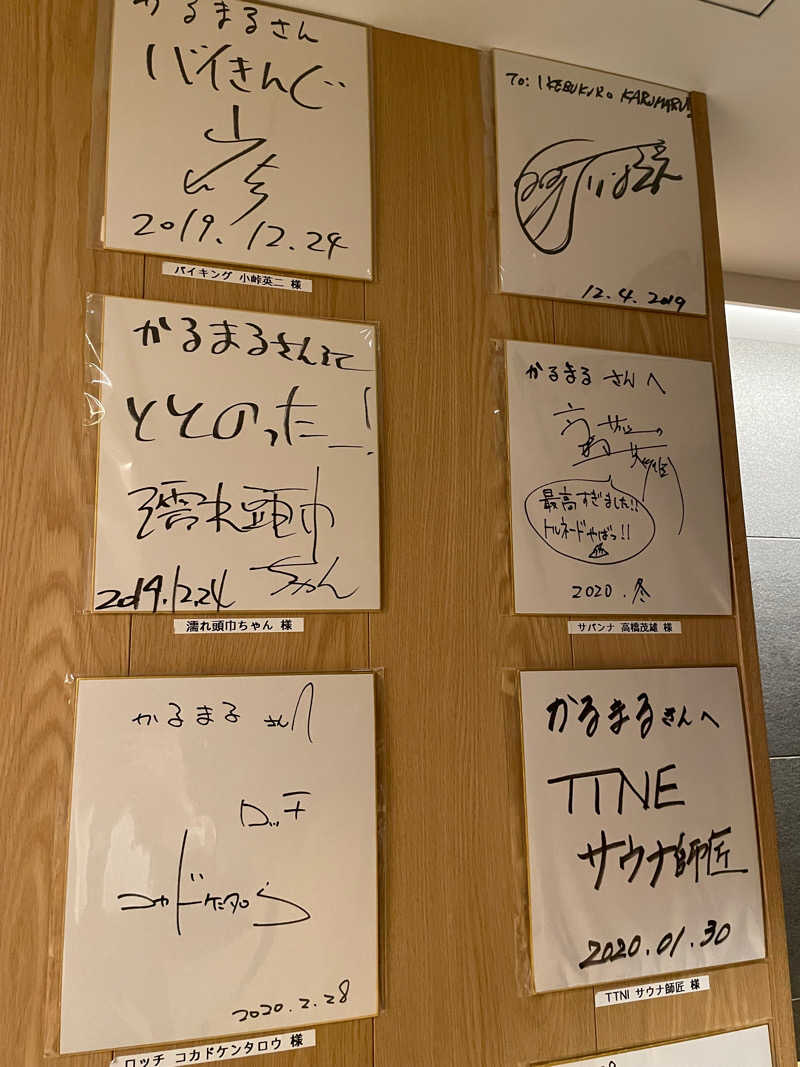 かるまるさん
バイきんぐ
小峠
2019.12.24
バイキング 小峠英二 様
かるまるさんにて
ととのったー!
濡れ頭巾
ちゃん
2019.12.24
濡れ頭巾ちゃん 様
かるまる さんへ
ロッチ
コカドケンタロウ
2020.2.28
ロッチ コカドケンタロウ 様
To: IKEBUKURO KARUMARU!!
12.4.2019
かるまる さんへ
最高すぎました!!
トルネードやばっ!!
2020.冬
サバンナ 高橋茂雄 様
かるまるさんへ
TTNE
サウナ師匠
2020.01.30
TTNI サウナ師匠 様